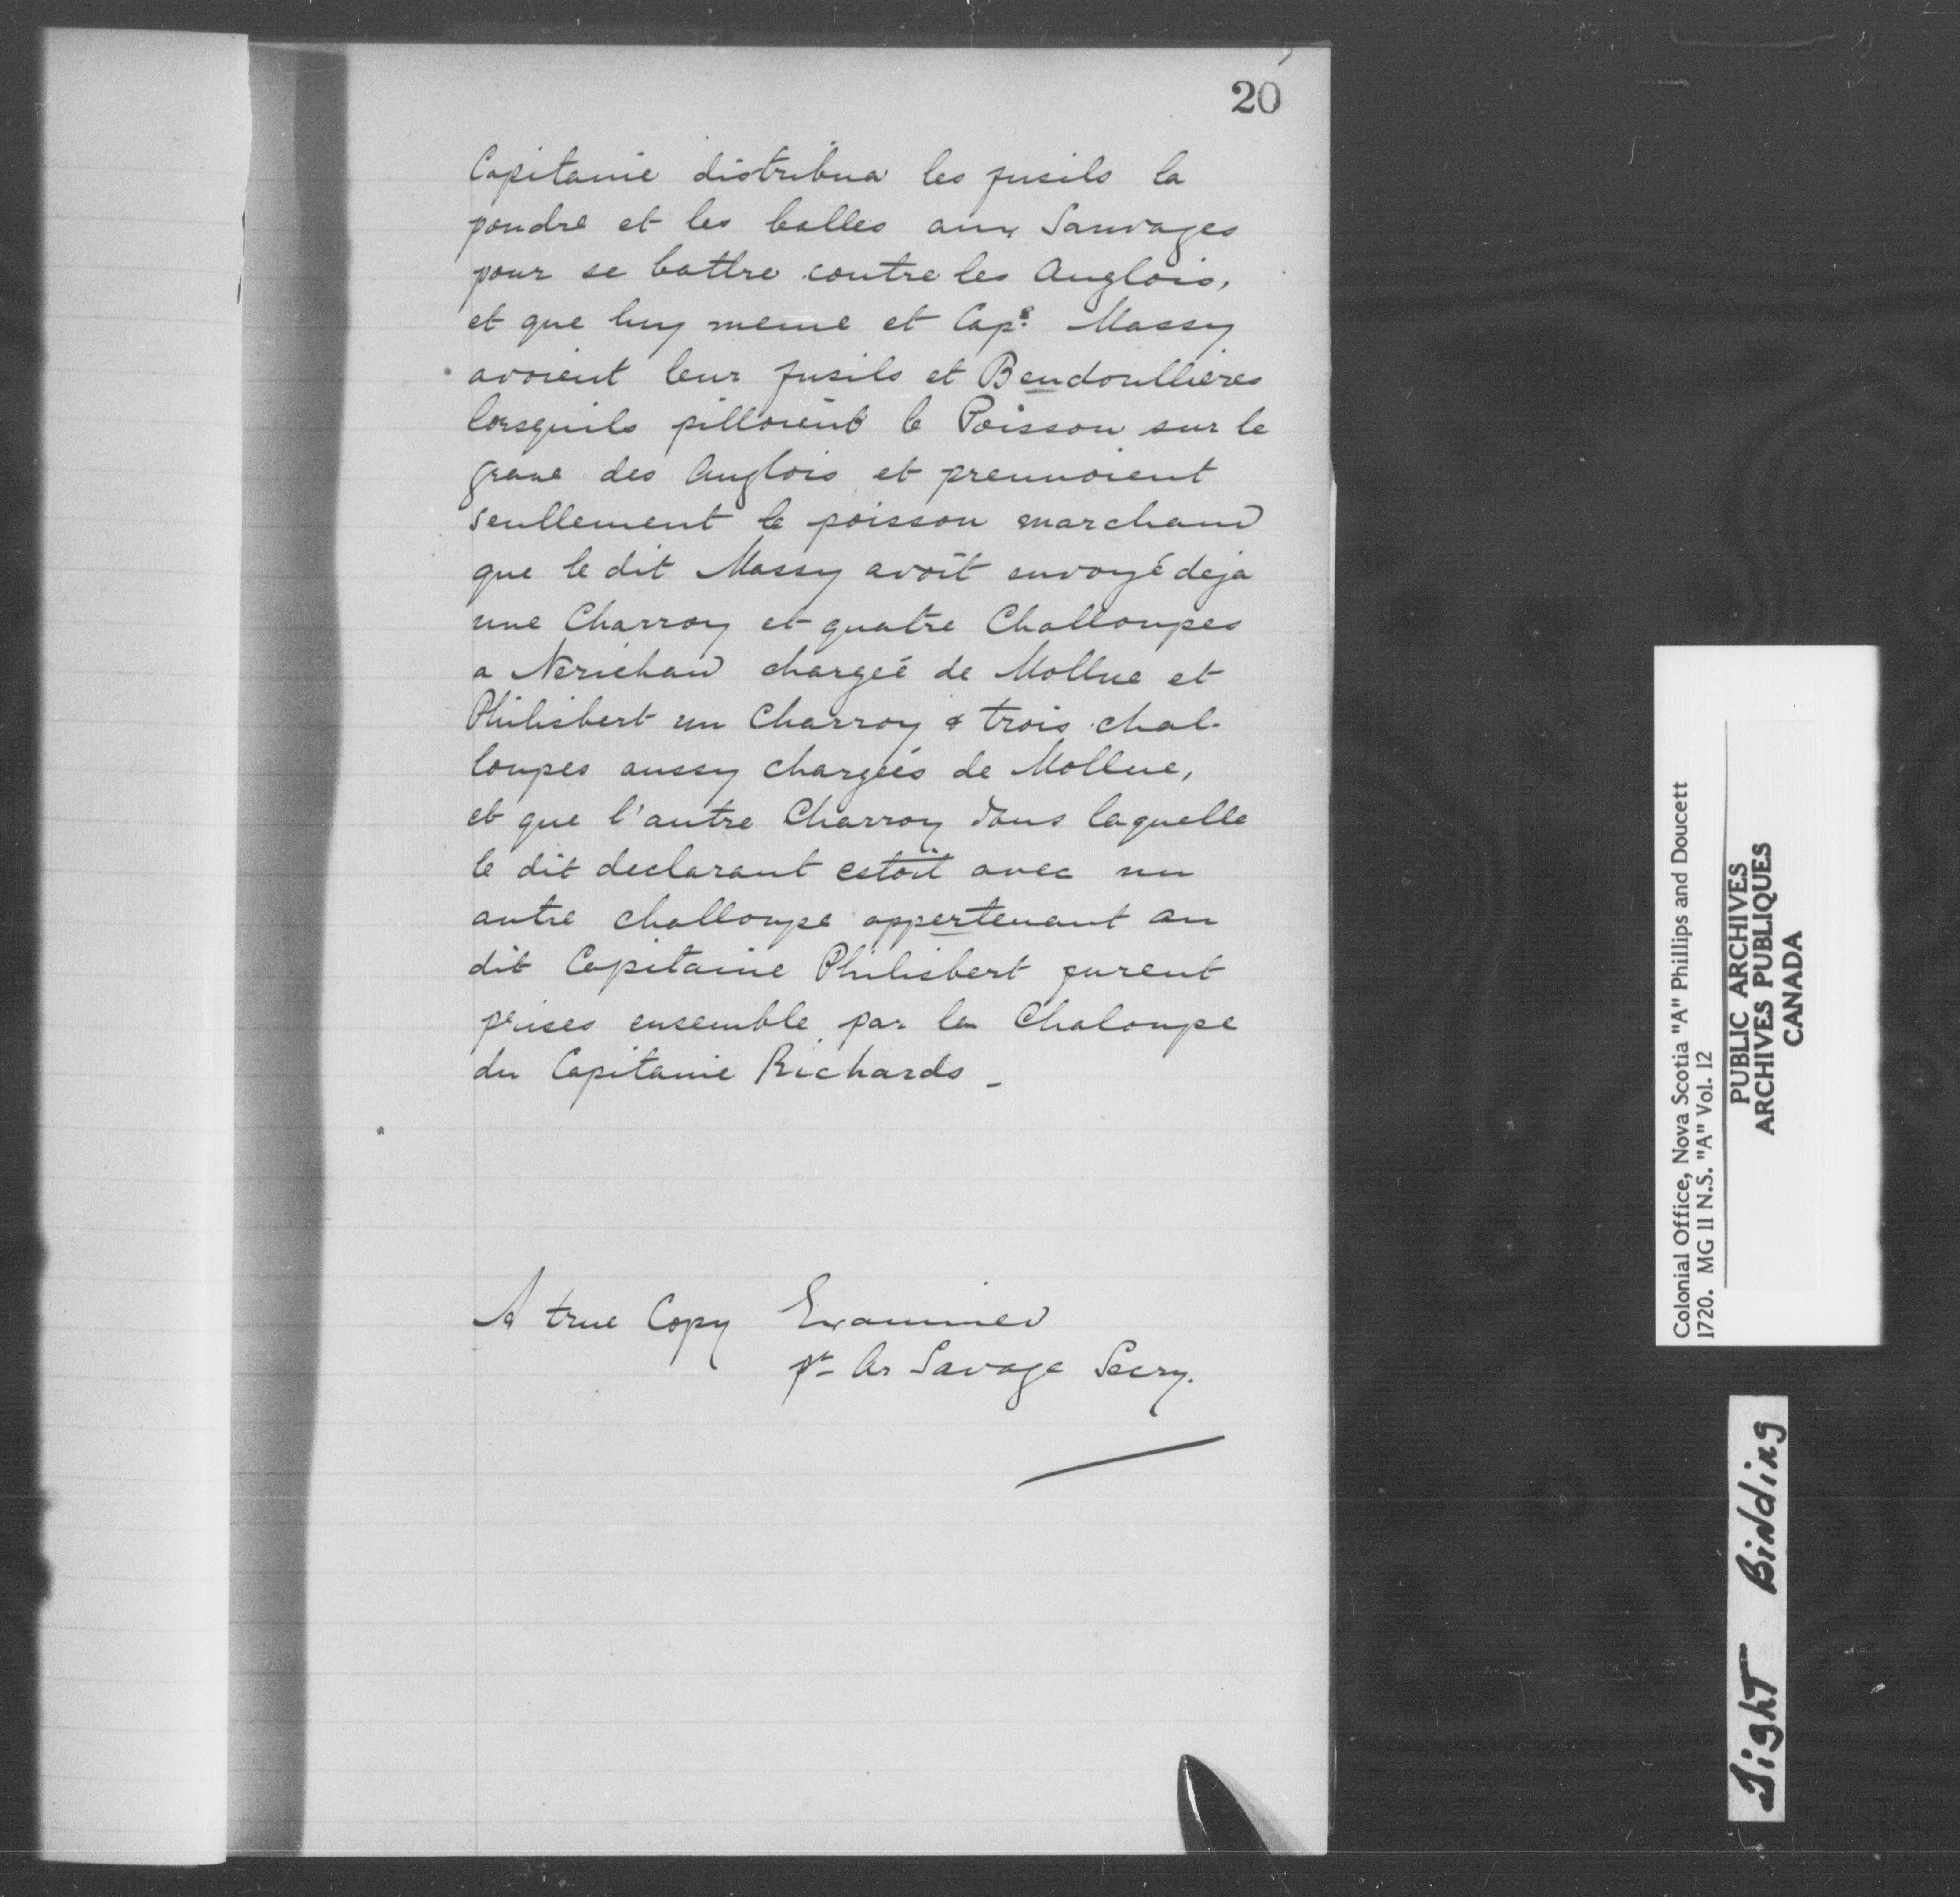 20
Capitaine distribua les fusils la
poudre et les balles aux Sauvages
pour se battre contre les Anglois,
et que luy meme et Cape. Massy
avoient leur fusils et Bendoullieres
lorsquils pilloient le Poisson sur le
grave des Anglois et prennoient
seullement le poisson marchand
que le dit Massy avoit envoyé deja
une Charroy et quatre Challoupes
a Nerichaw chargeé de Mollue et
Philisbert un Charroy & trois chal-
loupes aussy chargeés de Mollue,
et que l'autre Charroy dans laquelle
le dit declarant estoit avec un
autre challoupe appertenant au
dit Capitaine Philisbert furent
prises ensemble par la Chaloupe
du Capitaine Richards_
A true Copy Examined
pr Ar Savage Secry.
Colonial Office, Nova Scotia "A" Phillips and Doucett
1720. MG 11 N.S. "A" Vol. 12
PUBLIC ARCHIVES
ARCHIVES PUBLIQUES
CANADA
Tight Binding